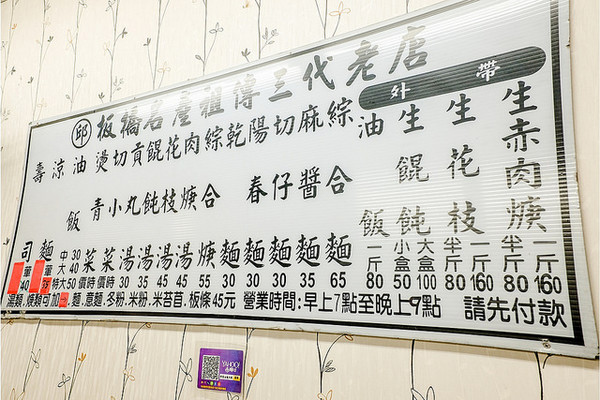 邱 板橋名產祖傳三代老店
外帶
壽司
涼麵
油飯 中30 大40 特大50
燙青菜 時價
切小菜 時價
貢丸湯 30
餛飩湯 35
花枝湯 45
肉焿湯 45
綜合焿 55
乾麵 30
陽春麵 30
切仔麵 30
麻醬麵 35
綜合麵 65
油飯 一斤 80
生餛飩 小盒 50 大盒 100
生花枝 半斤 80 一斤 160
生赤肉焿 半斤 80 一斤 160
湯類,焿類可加 麵,意麵,冬粉,米粉,米苔苜,板條45元 營業時間:早上7點至晚上9點 請先付款
YAHOO!